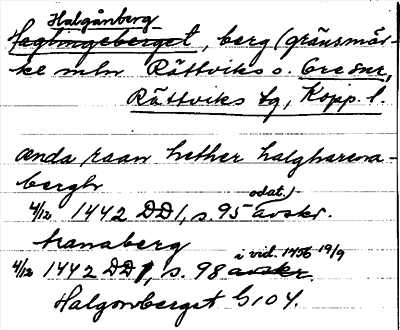 Halgånberg
Haglingeberget, berg (gränsmär-
ke mln Rättviks o. Ore snr,
Rättviks tg, Kopp. l.
ænda raan hether halgharena-
bergh
4/12 1442 DD 1, s. 95 avskr. odat.)
hanaberg
4/12 1442 DD 1, s. 98 avskr. i vid. 1456 19/9
Halgonberget G104.